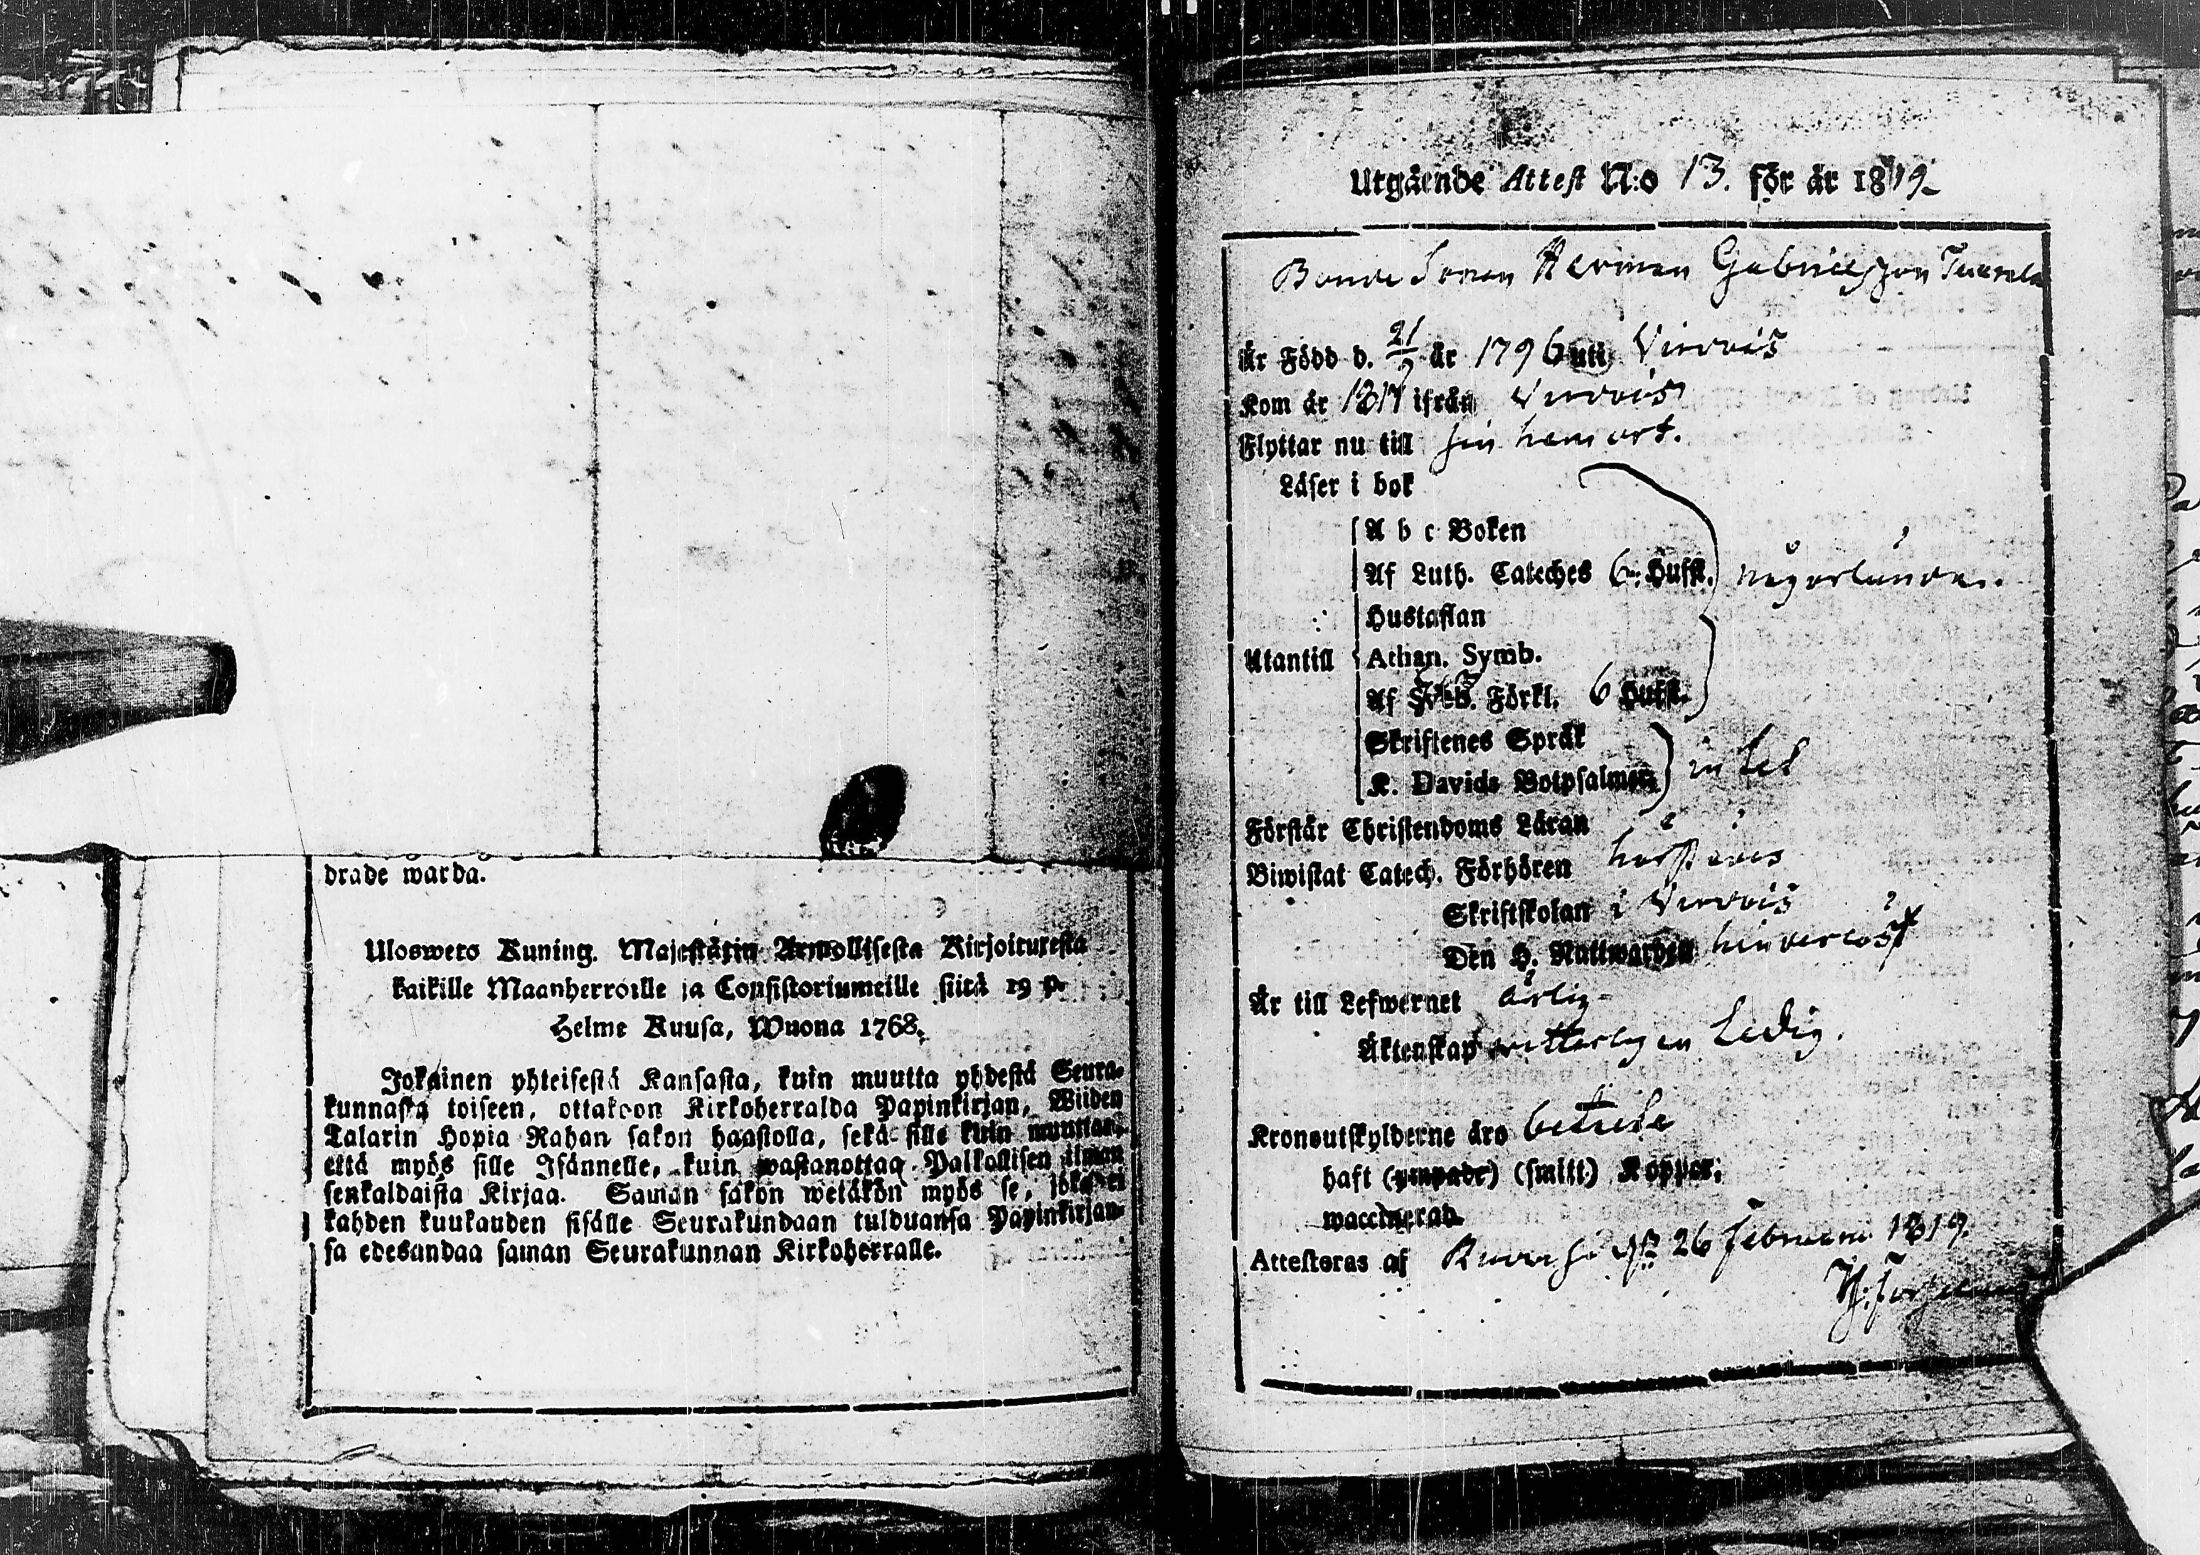 drade warda.
Uloswето Kuning. Majestätin Armollisesta Kirjoituxesta
kaikille Maanherroille ja Consistoriumeille siitä 19 p.
Helme Kuusa, Wuona 1768.
Jokainen yhteisestä Kansasta, kuin muutta yhdestä Seura-
kunnasta toiseen, ottakoon Kirkoherralda Papinkirjan, Wiiden
Talarin Hopia Rahan sakon haastolla, sekä sille kuin muuttaa,
että myös sille Isännelle, kuin wastanottaa Palkollisen ilman
senkaldaista Kirjaa. Saman sakon wetäkön myös se, joka ei
kahden kuukauden sisälle Seurakundaan tulduansa Papinkirjan-
sa edesandaa saman Seurakunnan Kirkoherralle.
Utgående Attest N:o 13. för år 1819
Bonde Sonen Herman Gabrielsson
Är Född d. 21/2 år 1796 uti Virdois
Kom år 1817 ifrån Virdois
Flyttar nu till sin hemort.
Läser i bok
A b c Boken
Af Luth. Cateches 6 Hufst. någorlunda.
Hustaflan
Utantill Athan. Symb.
Af Förkl. 6 Hufst.
Skriftenes Språk
K. Davids Botpsalmer intet
Förstår Christendoms Läran
Biwistat Catech. Förhören
Skriftskolan i Virdois
Den H. Nattwarden hinderlöst
Är till Lefwernet ärlig
Äktenskap witterligen Ledig.
Kronoutskylderne äro betalte
haft (ympade) (smitt) Koppor;
waccinerad.
Attesteras af 26 Februarii 1819.